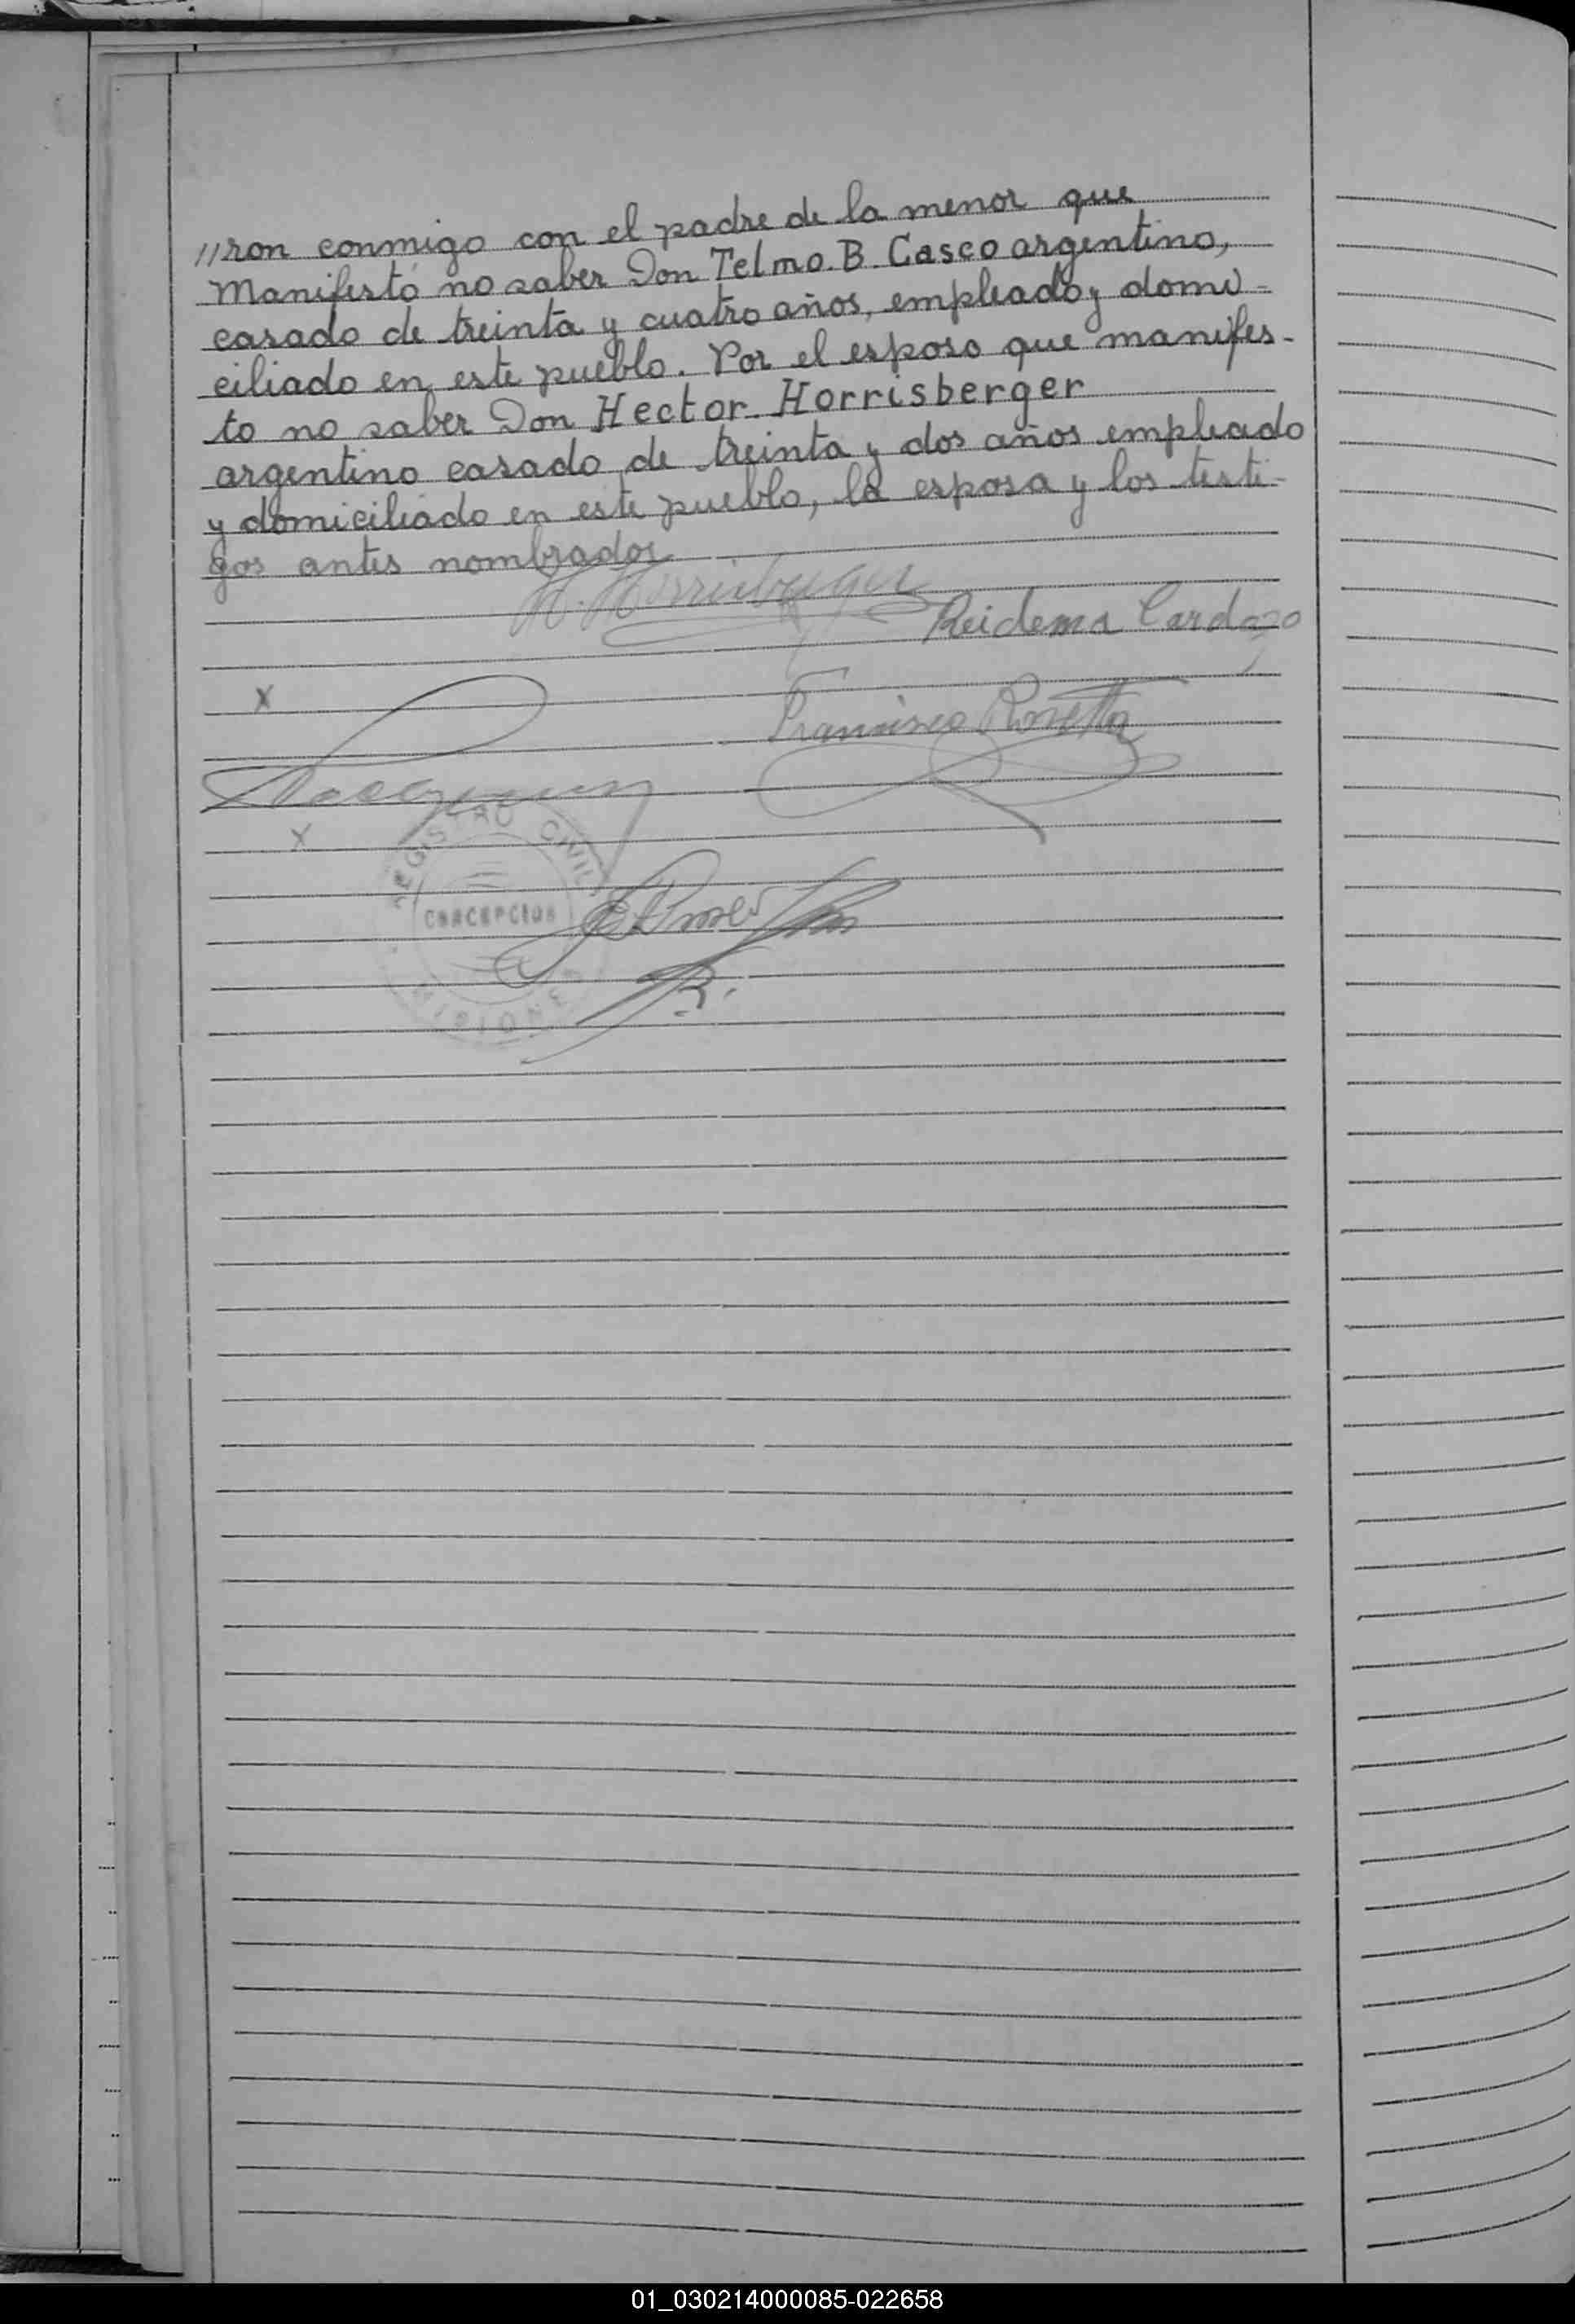 //ron conmigo con el padre de la menor que
Manifestó no saber Don Telmo. B. Casco argentino,
casado de treinta y cuatro años, empleado y domi-
ciliado en este pueblo. Por el esposo que manifes-
to no saber Don Hector. Horrisberger
argentino casado de treinta y dos años empleado
y domiciliado en este pueblo, la esposa y los testi-
gos antes nombrados
H. Horrisberger
Reidema Cardozo
X
Francisco Rosetta
X
REGISTRO CIVIL
CONCEPCION
MISIONES
01_030214000085-022658